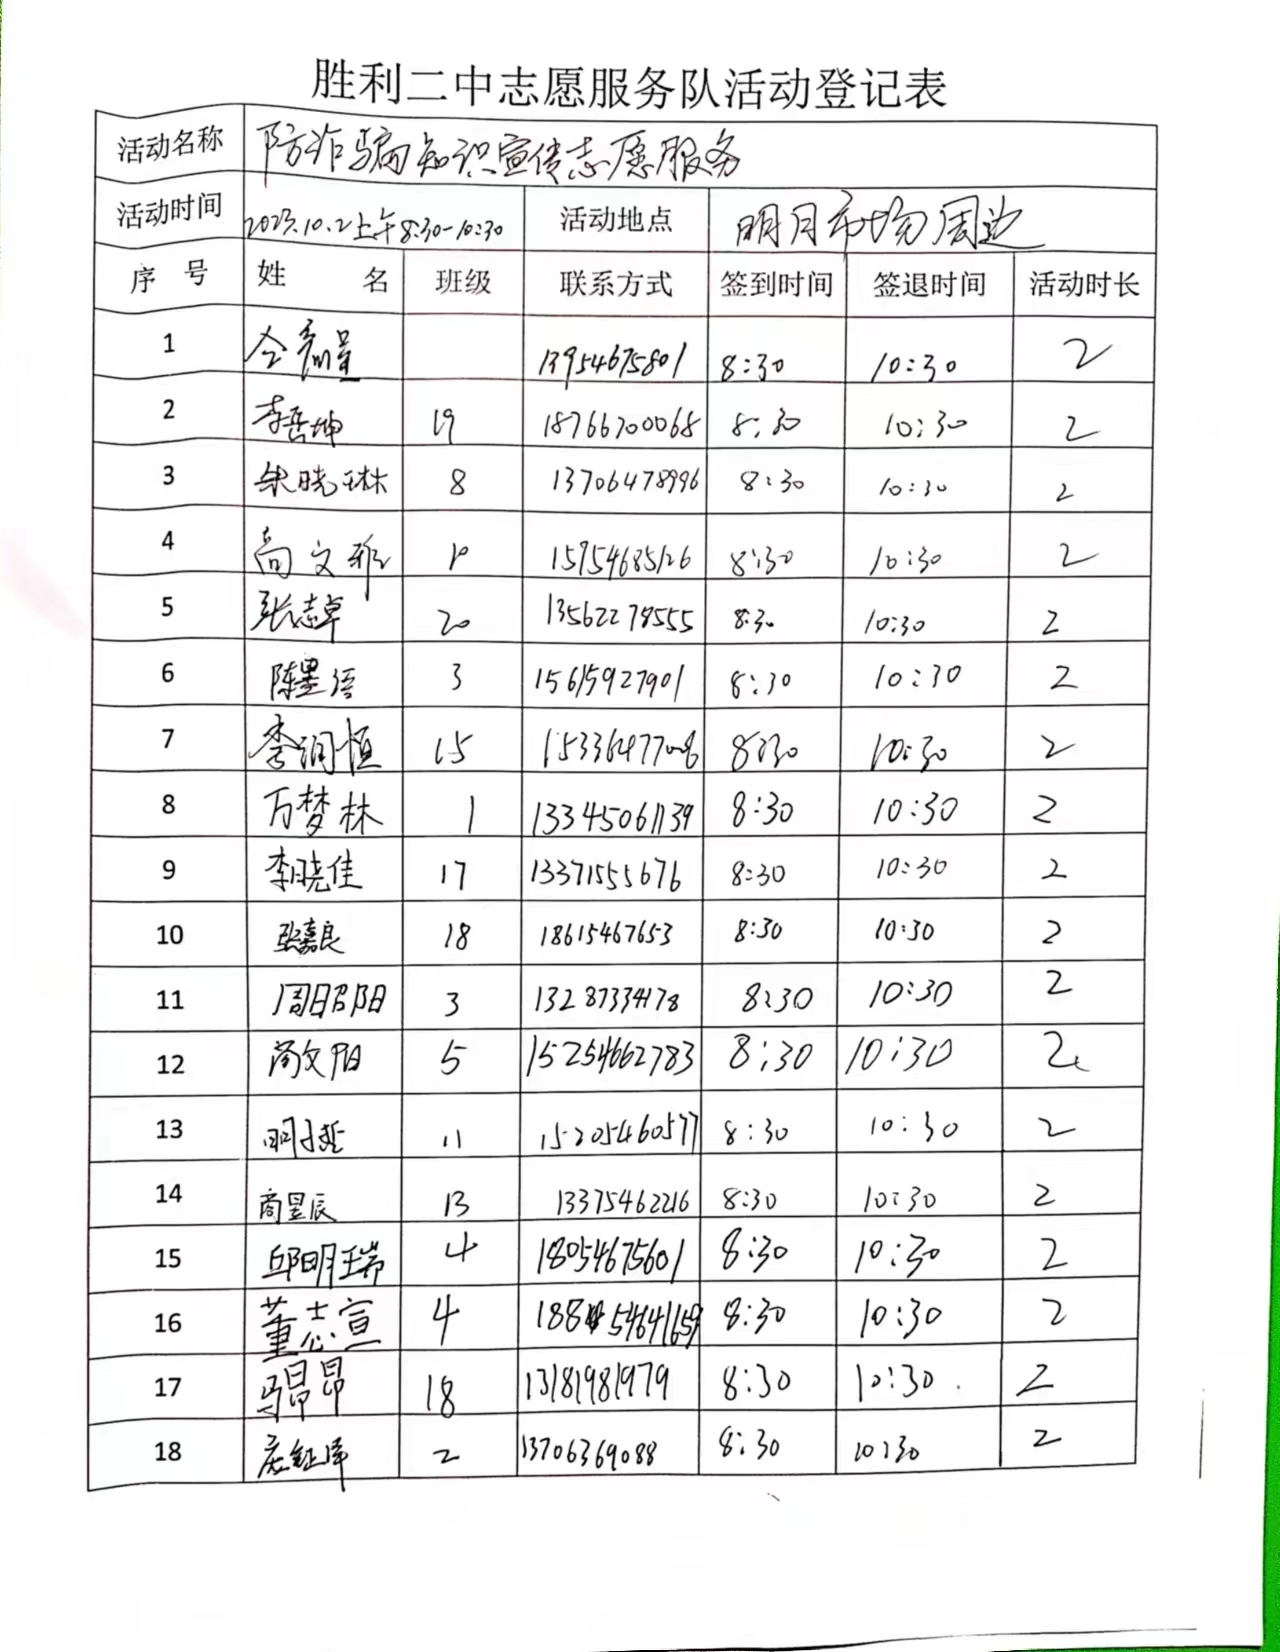 胜利二中志愿服务队活动登记表
活动名称 防诈骗知识宣传志愿服务
活动时间 2023.10.2上午8:30-10:30 活动地点 明月市场周边
序 号 姓 名 班级 联系方式 签到时间 签退时间 活动时长
1 13954675801 8:30 10:30 2
2 李岳坤 19 18766700068 8:30 10:30 2
3 朱晓琳 8 13706478996 8:30 10:30 2
4 尚文雅 15954685126 8:30 10:30 2
5 张志卓 20 13562278555 8:30 10:30 2
6 陈墨语 3 15615927901 8:30 10:30 2
7 李润恒 15 8:30 10:30 2
8 万梦林 1 13345061139 8:30 10:30 2
9 李晓佳 17 13371555676 8:30 10:30 2
10 张嘉良 18 18615467653 8:30 10:30 2
11 周昭阳 3 13287334178 8:30 10:30 2
12 尚文阳 5 15254662783 8:30 10:30 2
13 明子哲 11 15205460577 8:30 10:30 2
14 商昱辰 13 13375462216 8:30 10:30 2
15 邱明瑞 4 18054675601 8:30 10:30 2
16 董志宣 4 18854641659 8:30 10:30 2
17 马昂昂 18 13181981979 8:30 10:30 2
18 2 13706369088 8:30 10:30 2